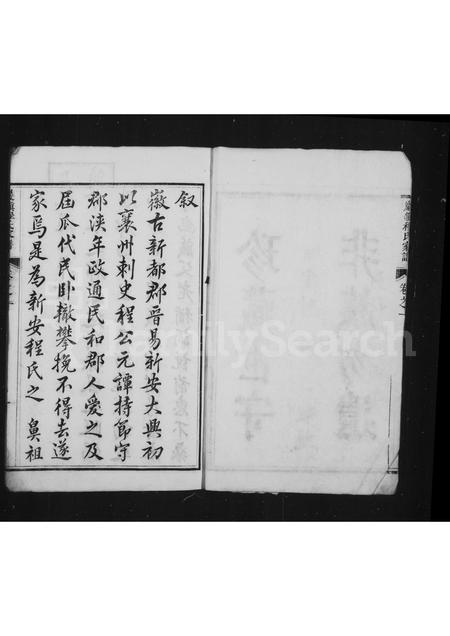 叙
徽古新都郡晉易新安大興初
以襄州刺史程公元譚持節守
郡浹年政通民和郡人愛之及
屆瓜代民卧轍攀挽不得去遂
家焉是為新安程氏之鼻祖
FamilySearch